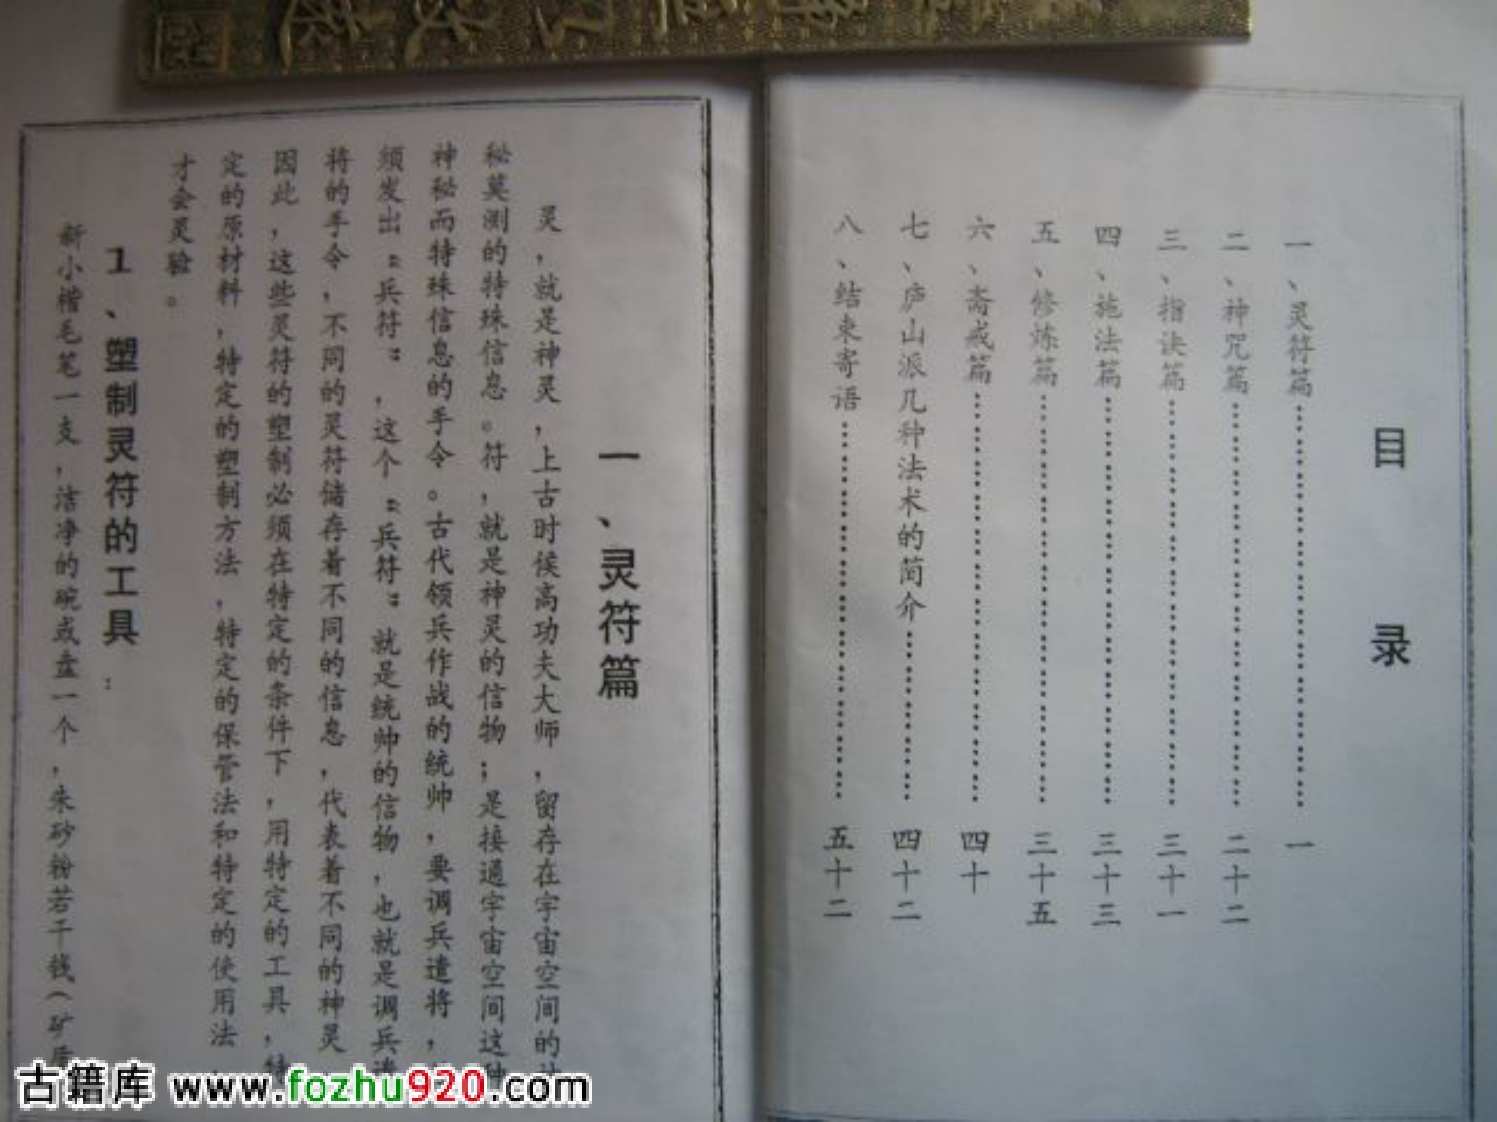 目录
一、灵符篇……………………一
二、神咒篇……………………二十二
三、指诀篇……………………三十一
四、施法篇……………………三十三
五、修炼篇……………………三十五
六、斋戒篇……………………四十
七、庐山派几种法术的简介…………四十二
八、结束寄语……………………五十二
一、灵符篇
灵，就是神灵，上古时候高功夫大师，留存在宇宙空间的
秘莫测的特殊信息。符，就是神灵的信物；是接通宇宙空间这种
神秘而特殊信息的手令。古代领兵作战的统帅，要调兵遣将，
须发出“兵符”，这个“兵符”就是统帅的信物，也就是调兵遣
将的手令，不同的灵符储存着不同的信息，代表着不同的神灵
因此，这些灵符的塑制必须在特定的条件下，用特定的工具，特
定的原材料，特定的塑制方法，特定的保管法和特定的使用法
才会灵验。
1、塑制灵符的工具：
新小楷毛笔一支，洁净的碗或盘一个，朱砂粉若干钱（矿
古籍库 www.fozhu920.com